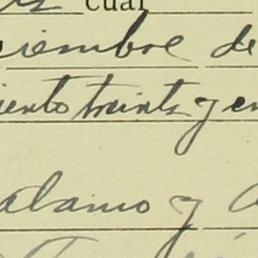 cual
iembre de
iento treinta y
alamo y